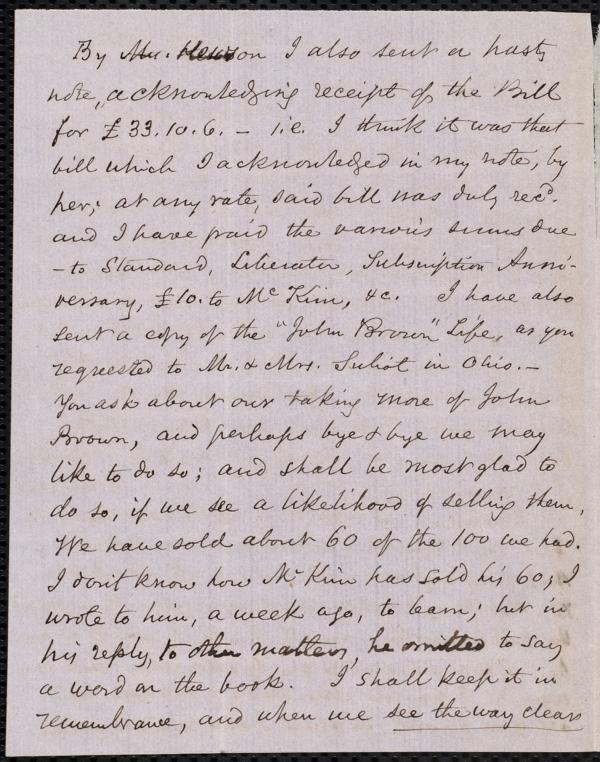 By Mr. Hewson I also sent a hasty
note, acknowledging receipt of the Bill
for £33.10.6. – i.e. I think it was that
bill which I acknowledged in my note, by
her; at any rate, said bill was duly recd.
and I have paid the various sums due
– to Standard, Liberator, Subscription Anni-
versary, £10. to McKim, &c. I have also
sent a copy of the "John Brown" Life, as you
requested to Mr. & Mrs. Suliot in Ohio. –
You ask about our taking more of John
Brown, and perhaps bye & bye we may
like to do so; and shall be most glad to
do so, if we see a likelihood of selling them.
We have sold about 60 of the 100 we had.
I don't know how McKim has sold his 60; I
wrote to him, a week ago, to learn; but in
his reply, to other matters, he omitted to say
a word on the book. I shall keep it in
remembrance, and when we see the way clear